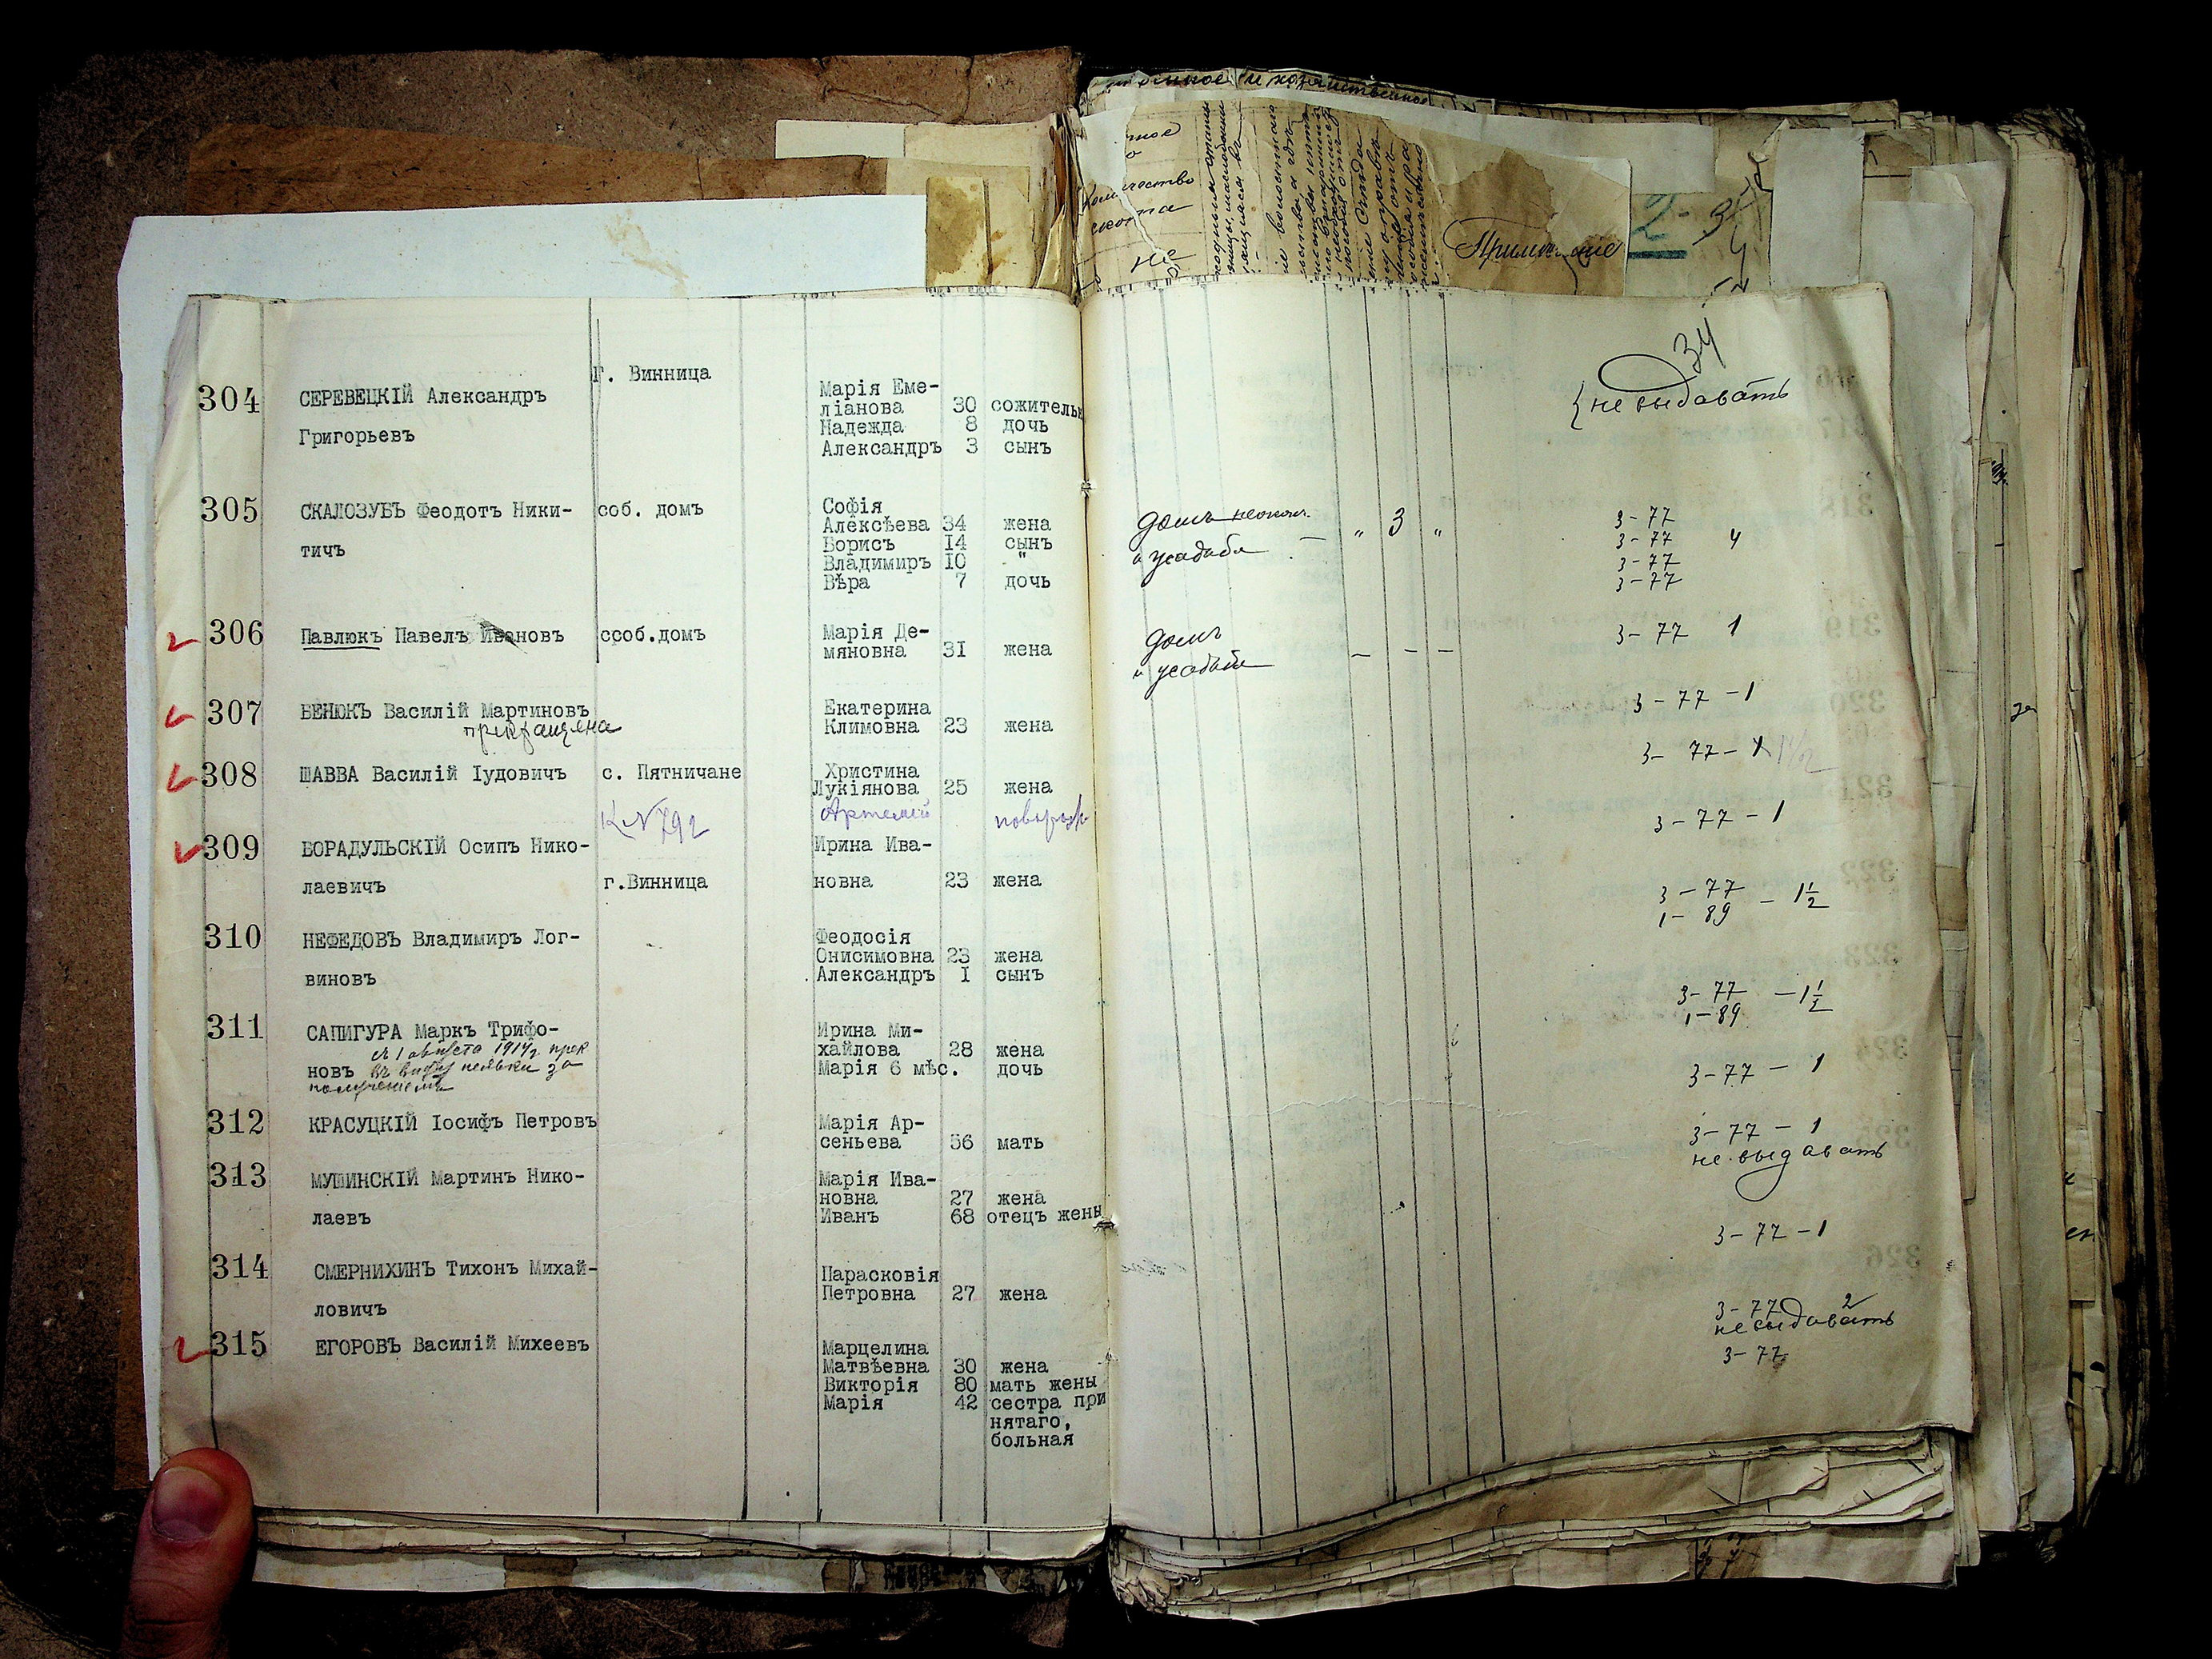 34
304 СЕРЕВЕЦКІЙ Александръ Г. Винница Марія Еме- { не выдавать
ліанова 30 сожительн
Григорьевъ Надежда 8 дочь
Александръ 3 сынъ
305 СКАЛОЗУБЪ Феодотъ Ники- соб. домъ Софія
Алексѣева 34 жена домъ 3-77
тичъ Борисъ 14 сынъ и усадьба — " 3 " 3-77 4
Владимиръ 10 " 3-77
Вѣра 7 дочь 3-77
306 Павлюкъ Павелъ Ивановъ ссоб.домъ Марія Де- домъ 3-77 1
мяновна 31 жена и усадьба — — —
307 БЕНЮКЪ Василій Мартиновъ Екатерина 3-77-1
прекращена Климовна 23 жена
308 ШАВВА Василій Іудовичъ с. Пятничане Христина 3-77-1 1½
Лукіянова 25 жена
К № 792 Артемій
309 БОРАДУЛЬСКІЙ Осипъ Нико- Ирина Ива- 3-77-1
лаевичъ г.Винница новна 23 жена
310 НЕФЕДОВЪ Владимиръ Лог- Феодосія 3-77
Онисимовна 23 жена 1-89 - 1½
виновъ Александръ 1 сынъ
311 САПИГУРА Маркъ Трифо- Ирина Ми- 3-77 - 1½
съ 1 августа 1917г. прек хайлова 28 жена 1-89
новъ въ виду неявки за Марія 6 мѣс. дочь
получениемъ
3-77 - 1
312 КРАСУЦКІЙ Іосифъ Петровъ Марія Ар- 3-77 - 1
сеньева 56 мать не выдавать
313 МУШИНСКІЙ Мартинъ Нико- Марія Ива-
новна 27 жена
лаевъ Иванъ 68 отецъ жены 3-77-1
314 СМЕРНИХИНЪ Тихонъ Михай- Парасковія
Петровна 27 жена
ловичъ 3-77 2
не выдавать
315 ЕГОРОВЪ Василій Михеевъ Марцелина 3-77
Матвѣевна 30 жена
Викторія 80 мать жены
Марія 42 сестра при
нятаго,
больная